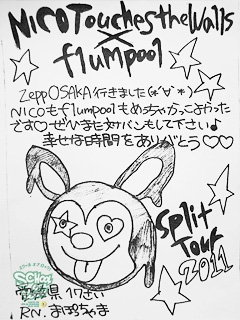 NICO Touches the Walls
×
flumpool
Zepp OSAKA 行きました(*´∀`*)
NICOもflumpoolもめっちゃかっこよかった
です♡ぜひまた対バンもして下さい♪
幸せな時間をありがとう♡♡
Split
Tour
2011
SCHOOL
愛媛県 17さい
R.N. まぽちゃま